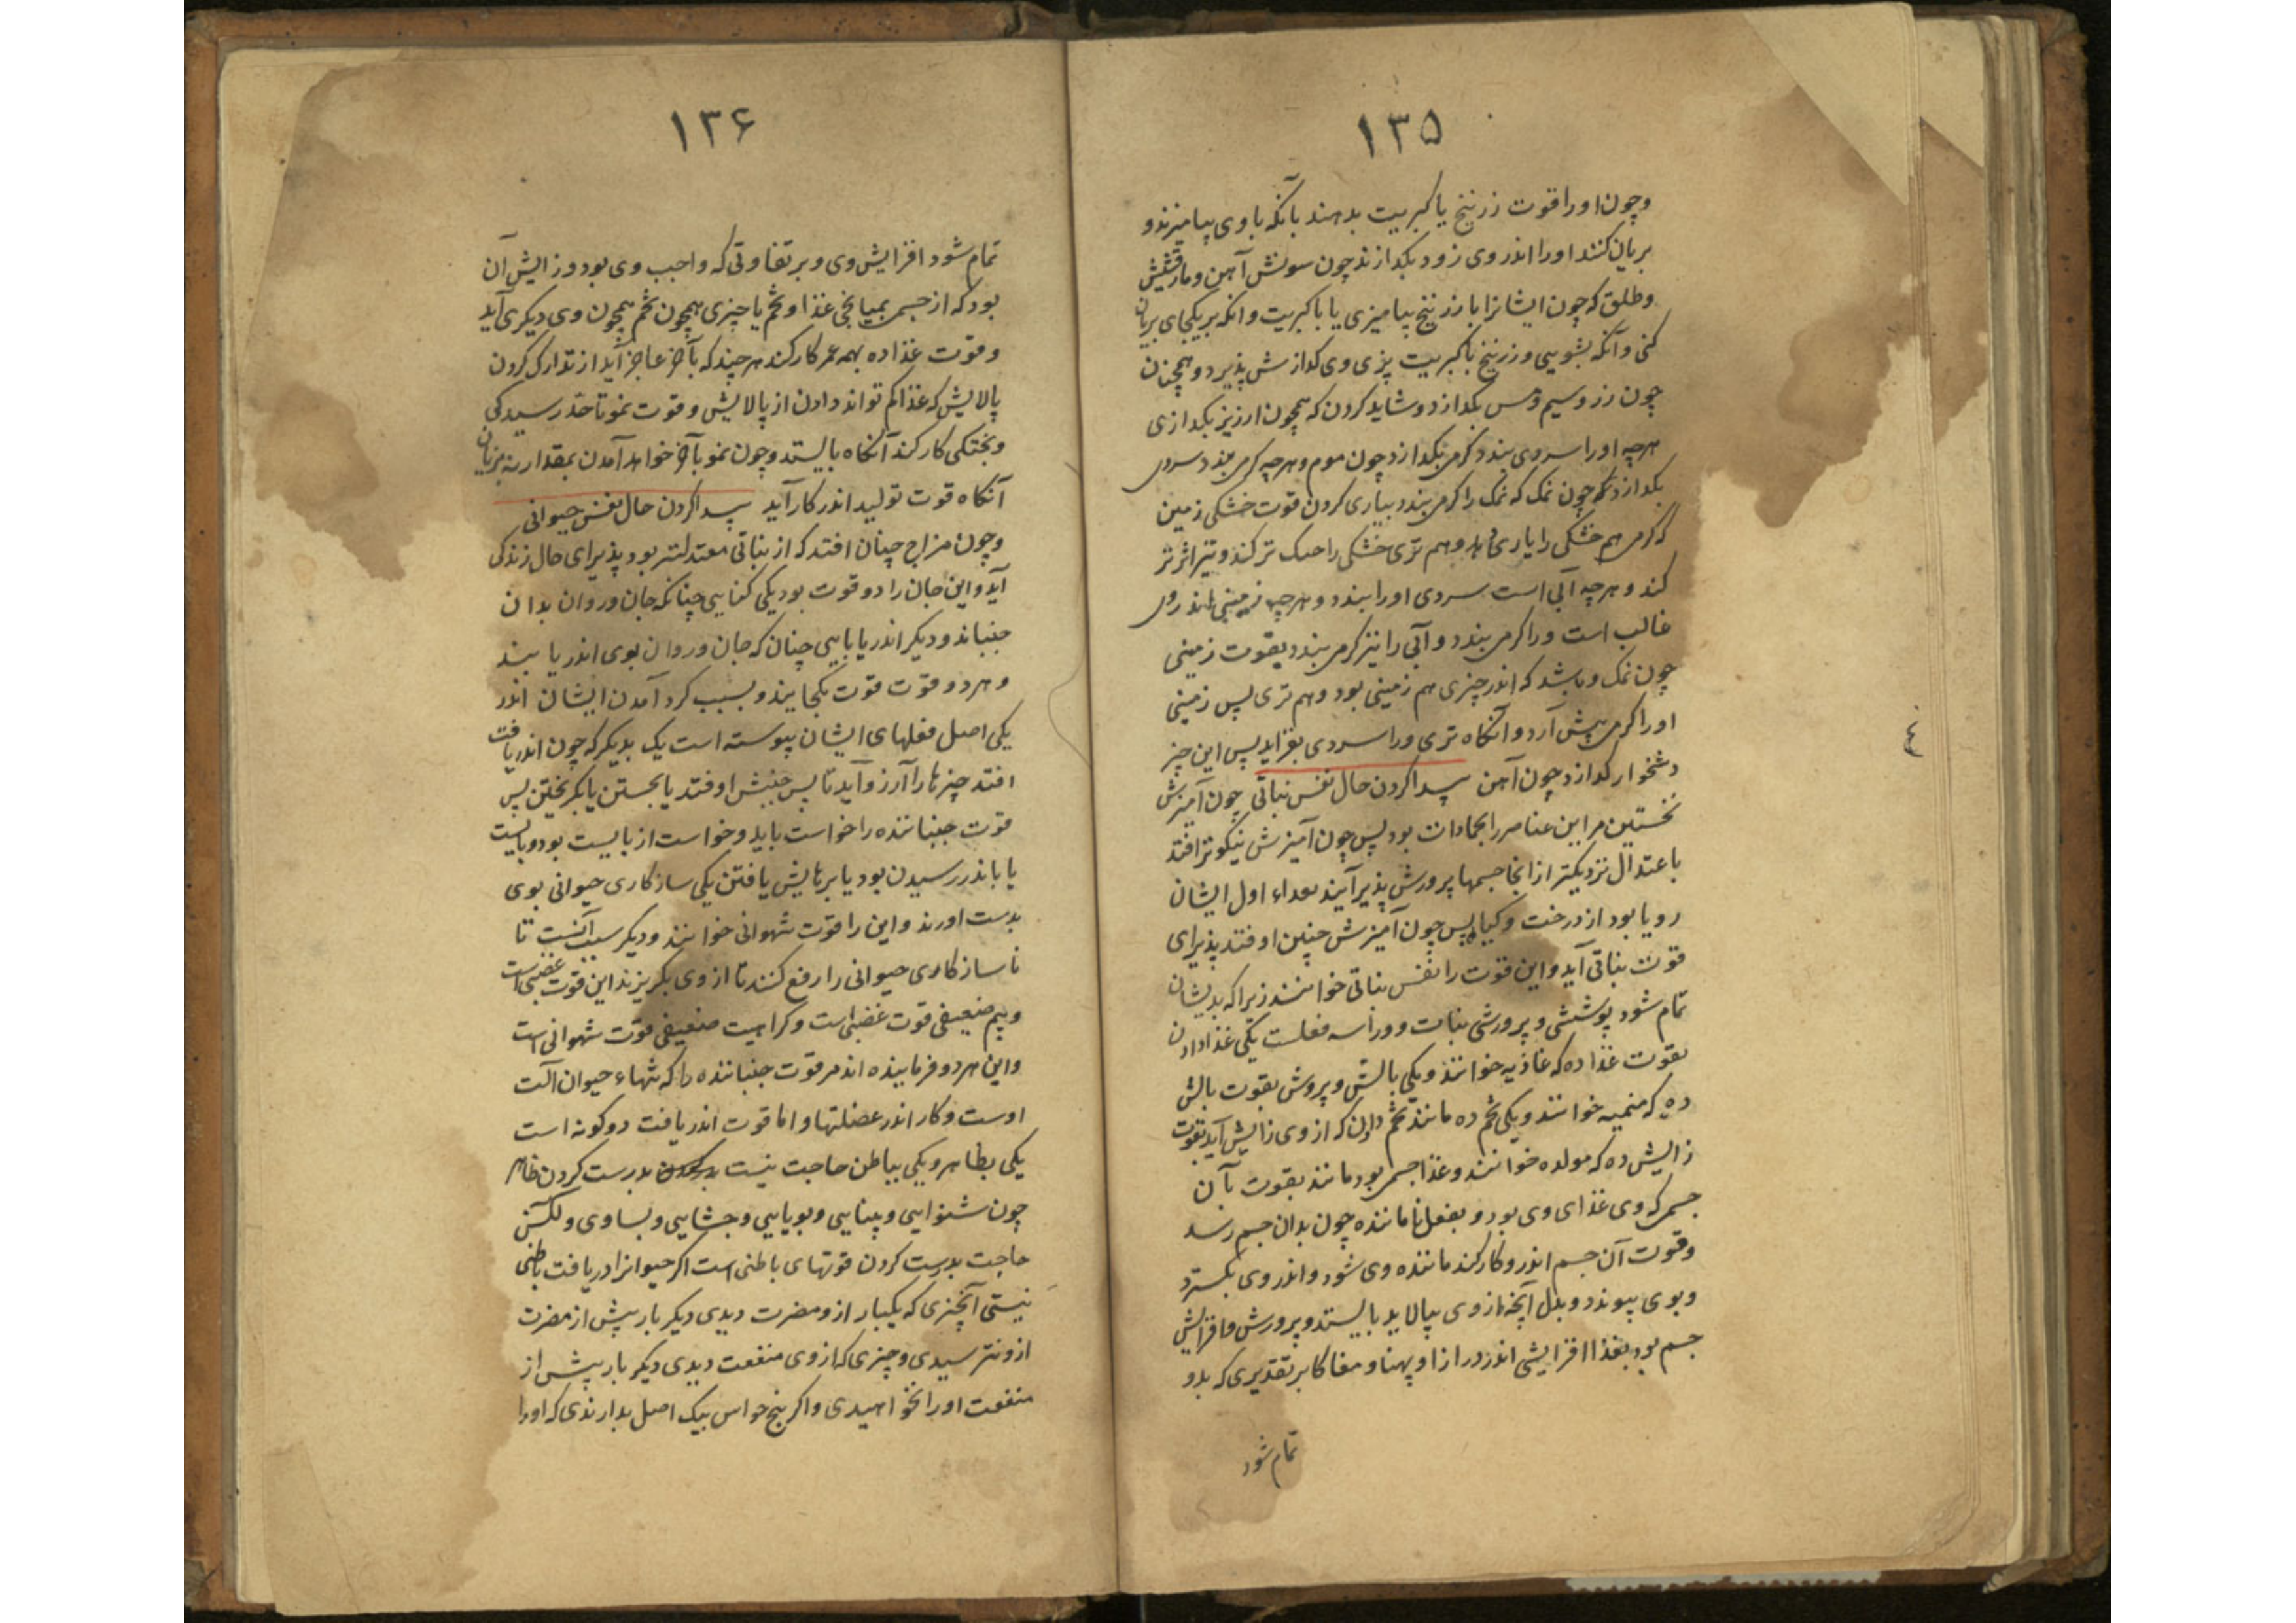 ۱۳۵
وچون اورا قوت زرنیخ یا کبریت بدهند بآنکه باوی بیامیزند و
بریان کنند اورا اندر وی زود بکدازند چون سونش آهن و مارقشیش
وطلق که چون ایشانرا بازرنیخ بیامیزی یا باکبریت وانکه بریکجای بریان
کنی وآنکه بشویی وزرنیخ باکبریت پزی وی کدازش پذیرد وهمچنان
چون زر وسیم ومس بکدازد وشاید کردن که همچون ارزیز بکدازی
هرچه اورا سردی بندد کرمی بکدازد چون موم وهرچه کرمی بندد سردی
بکدازد چون نمک که نمک را کرمی بندد بیاری کردن قوت خشکی زمین
که کرمی هم خشکی را یاری دهد وهم تری خشکی را سبک تر کند وتیز اثرتر
کند وهرچه آبی است سردی اورا ببندد وهرچه زمینی اندر وی
غالب است ورا کرمی بندد وآبی را نیز کرمی بندد بقوت زمینی
چون نمک وباشد که اندر چیزی هم زمینی بود وهم تری پس زمینی
اورا کرمی پیش آرد وآنکاه تری ورا سردی بفزاید پس این چیز
دشخوار کدازد چون آهن پیدا کردن حال نفس نباتی چون آمیزش
نخستین مر این عناصر را جمادات بود پس چون آمیزش نیکوتر افتد
باعتدال نزدیکتر ازانجا جسمها پرورش پذیر آیند مبداء اول ایشان
رویا بود از درخت وکیاه پس چون آمیزش چنین اوفتد پذیرای
قوت نباتی آید واین قوت را نفس نباتی خوانند زیرا که بدیشان
تمام شود پوشش و پرورش نبات وورا سه فعلست یکی غذا دادن
بقوت غذا ده که غاذیه خوانند ویکی بالش و پروش بقوت بالش
ده که منمیه خوانند ویکی تخم ده مانند تخم دادن که از وی زایش آید بقوت
زایش ده که مولده خوانند وغذا جسمی بود مانند بقوت بآن
جسم که وی غذای وی بود و بفعل نا ماننده چون بدان جسم رسد
وقوت آن جسم اندرو کار کند ماننده وی شود واندر وی بکسترد
وبوی پیوندد وبدل آنچه از وی بپالاید بایستد وپرورش وافزایش
جسم بود بغذا افزایشی اندر درازا وپهنا ومغاکا بر تقدیری که بدو
تمام شود
۱۳۶
تمام شود افزایش وی وبر تفاوتی که واجب وی بود وزایش آن
بود که از جسم بمیانجی غذا وتخم یا چیزی همچون تخم همچون وی دیکری آید
وقوت غذا ده بهمه عمر کار کند هرچند که بآخر عاجز آید از تدارک کردن
پالایش که غذا کم تواند دادن از پالایش وقوت نمو تا حد رسیدکی
وپختکی کار کند آنکاه بایستد وچون نمو بآخر خواهد آمدن بمقدار نه بزیان
آنکاه قوت تولید اندر کار آید پیدا کردن حال نفس حیوانی
وچون مزاج چنان افتد که از نباتی معتدلتر بود پذیرای حال زندکی
آید واین جان را دو قوت بود یکی کنایی چنانکه جان وروان بدان
جنباند ودیکر اندریابایی چنان که جان وروان بوی اندر یابند
وهر دو قوت قوت یکجایند وبسبب کرد آمدن ایشان اندر
یکی اصل فعلهای ایشان پیوسته است یک بدیکر که چون اندر یافت
افتد چیزها را آرزو آید تا پس جنبش اوفتد یا بجستن یا بکریختن پس
قوت جنباننده را خواست باید وخواست از بایست بود وبایست
یا باندر رسیدن بود یا بر بایش یافتن یکی سازکاری حیوانی بوی
بدست اورند واین را قوت شهوانی خوانند ودیکر سبب آنست تا
ناسازکاری حیوانی را رفع کنند تا از وی بکریزند این قوت غضبی است
وبیم ضعیفی قوت غضبی است وکراهیت ضعیفی قوت شهوانی است
واین هر دو فرماینده اند مر قوت جنباننده را که تنهاء حیوان آلت
اوست وکار اندر عضلتها واما قوت اندریافت دو کونه است
یکی بظاهر ویکی بباطن حاجت نیست بدرست کردن ظاهر
چون شنوایی وبینایی وبویایی وچشایی وبساوی ولکن
حاجت بدرست کردن قوتهای باطنی است اکر حیوانرا دریافت باطنی
نیستی آنچیزی که یکبار ازو مضرت دیدی دیکر بار پیش از مضرت
ازو نترسیدی وچیزی که از وی منفعت دیدی دیکر بار پیش از
منفعت اورا نخواهیدی واکر پنج حواس بیک اصل بدارندی که اورا